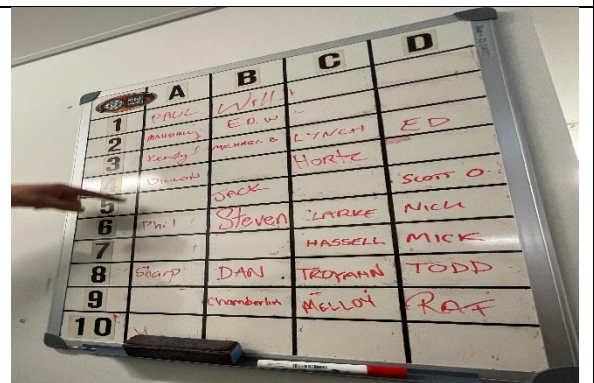 A B C D
1 PAUL Will
2 E.D.W LYNCH ED
3 MICHAEL B
4 DILLON SCOTT O.
5 JACK
6 Phil Steven CLARKE NICK
7 HASSELL MICK
8 Sharp DAN TODD
9 Chamberlin MELLOY RAF
10